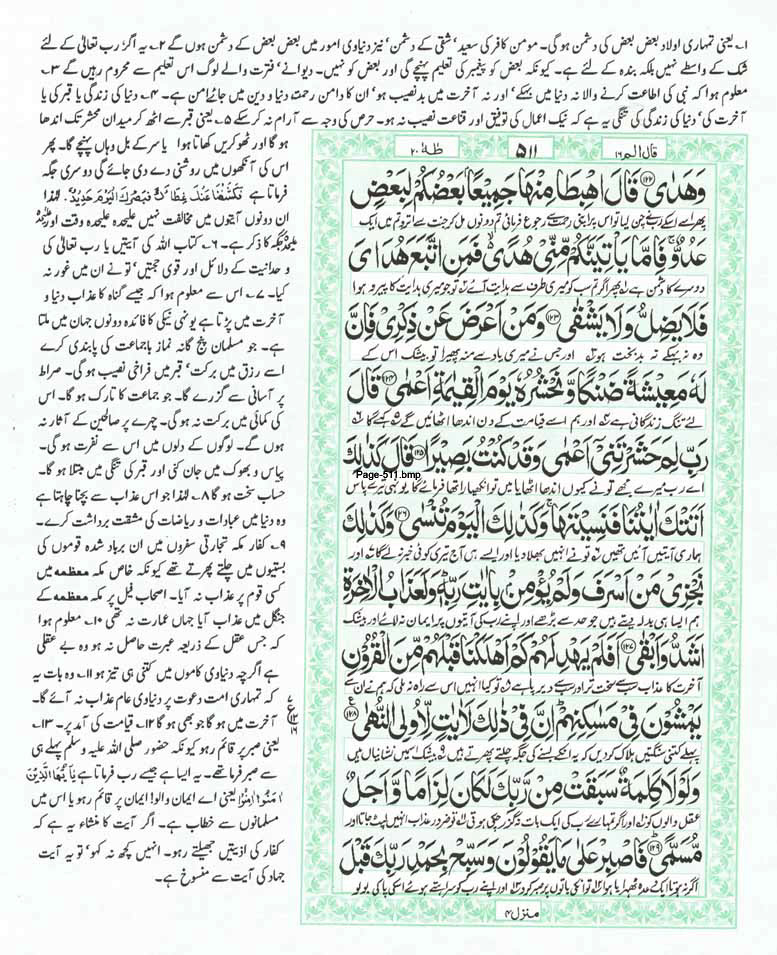 ۱۔ یعنی تمہاری اولاد بعض بعض کی دشمن ہو گی۔ مومن کافر کی سعید' شقی کے دشمن' نیز دنیاوی امور میں بعض بعض کے دشمن ہوں گے ۲۔ یہ اگر' رب تعالیٰ کے لئے
شک کے واسطے نہیں بلکہ بندہ کے لئے ہے۔ کیونکہ بعض کو پیغمبر کی تعلیم پہنچے گی اور بعض کو نہیں۔ دیوانے' فترت والے لوگ اس تعلیم سے محروم رہیں گے ۳۔
معلوم ہوا کہ نبی کی اطاعت کرنے والا نہ دنیا میں بہکے' اور نہ آخرت میں بدنصیب ہو' ان کا دامن رحمت' دنیا و دین میں جائے امن ہے۔ ۴۔ دنیا کی زندگی یا قبر کی یا
آخرت کی' دنیا کی زندگی کی تنگی یہ ہے کہ نیک اعمال کی توفیق اور قناعت نصیب نہ ہو۔ حرص کی وجہ سے آرام نہ کر سکے ۵۔ یعنی قبر سے اٹھ کر میدان محشر تک اندھا
ہو گا اور ٹھوکریں کھاتا ہوا یا سر کے بل وہاں پہنچے گا۔ پھر
اس کی آنکھوں میں روشنی دے دی جائے گی دوسری جگہ
فرماتا ہے فَكَشَفْنَا عَنْكَ غِطَآءَكَ فَبَصَرُكَ الْيَوْمَ حَدِيْدٌ۔ لہٰذا
ان دونوں آیتوں میں مخالفت نہیں علیحدہ علیحدہ وقت اور علیحدہ
علیحدہ جگہ کا ذکر ہے۔ ۶۔ کتاب اللہ کی آیتیں یا رب تعالیٰ کی
وحدانیت کے دلائل اور قوی حجتیں' تو نے ان میں غور نہ
کیا۔ ۷۔ اس سے معلوم ہوا کہ جیسے گناہ کا عذاب دنیا و
آخرت میں پڑتا ہے یونہی نیکی کا فائدہ دونوں جہان میں ملتا
ہے۔ جو مسلمان پنج گانہ نماز باجماعت کی پابندی کرے
اسے رزق میں برکت' قبر میں فراخی نصیب ہو گی۔ صراط
پر آسانی سے گزرے گا۔ جو جماعت کا تارک ہو گا۔ اس
کی کمائی میں برکت نہ ہو گی۔ چہرے پر صالحین کے آثار نہ
ہوں گے۔ لوگوں کے دلوں میں اس سے نفرت ہو گی۔
پیاس و بھوک میں جان کنی اور قبر کی تنگی میں مبتلا ہو گا۔
حساب سخت ہو گا ۸۔ لہٰذا جو اس عذاب سے بچنا چاہتا ہے
وہ دنیا میں عبادات و ریاضات کی مشقت برداشت کرے۔
۹۔ کفار مکہ تجارتی سفروں میں ان برباد شدہ قوموں کی
بستیوں میں چلتے پھرتے تھے کیونکہ خاص مکہ معظمہ میں
کسی قوم پر عذاب نہ آیا۔ اصحاب فیل پر مکہ معظمہ کے
جنگل میں عذاب آیا جہاں عمارت نہ تھی ۱۰۔ معلوم ہوا
کہ جس عقل کے ذریعہ عبرت حاصل نہ ہو وہ بے عقلی
ہے اگرچہ دنیاوی کاموں میں کتنی ہی تیز ہو ۱۱۔ وہ بات یہ
کہ تمہاری امت دعوت پر دنیاوی عام عذاب نہ آئے گا۔
آخرت میں ہو گا جو بھی ہو گا ۱۲۔ قیامت کی آمد پر۔ ۱۳۔
یعنی صبر پر قائم رہو کیونکہ حضور صلی اللہ علیہ وسلم پہلے ہی
سے صبر فرماتے تھے۔ یہ ایسا ہے جیسے رب فرماتا ہے يٰٓاَيُّهَا الَّذِيْنَ
اٰمَنُوْا اٰمِنُوْا یعنی اے ایمان والو! ایمان پر قائم رہو یا اس میں
مسلمانوں سے خطاب ہے۔ اگر آیت کا منشاء یہ ہے کہ
کفار کی اذیتیں جھیلتے رہو۔ انہیں کچھ نہ کہو' تو یہ آیت
جہاد کی آیت سے منسوخ ہے۔
قال الم ۱۶
۵۱۱
طٰهٰ ۲۰
وَهَدٰى ﴿۱۲۲﴾ قَالَ اهْبِطَا مِنْهَا جَمِيْعًۢا بَعْضُكُمْ لِبَعْضٍ
پھر اسے اسکے رب نے چن لیا تو اس پر اپنی رحمت سے رجوع فرمائی تم دونوں مل کر جنت سے اترو تم میں ایک
عَدُوٌّ ۚ فَاِمَّا يَاْتِيَنَّكُمْ مِّنِّىْ هُدًى ۙ فَمَنِ اتَّبَعَ هُدَاىَ
دوسرے کا دشمن ہے ۱ پھر اگر تم سب کو میری طرف سے ہدایت آئے ۲ تو جو میری ہدایت کا پیرو ہوا
فَلَا يَضِلُّ وَلَا يَشْقٰى ﴿۱۲۳﴾ وَمَنْ اَعْرَضَ عَنْ ذِكْرِىْ فَاِنَّ
وہ نہ بہکے نہ بدبخت ہو ۳ اور جس نے میری یاد سے منہ پھیرا تو بیشک اس کے
لَهٗ مَعِيْشَةً ضَنْكًا وَّنَحْشُرُهٗ يَوْمَ الْقِيٰمَةِ اَعْمٰى ﴿۱۲۴﴾ قَالَ
لئے تنگ زندگانی ہے ۴ اور ہم اسے قیامت کے دن اندھا اٹھائیں گے ۵ کہے گا
رَبِّ لِمَ حَشَرْتَنِىْٓ اَعْمٰى وَقَدْ كُنْتُ بَصِيْرًا ﴿۱۲۵﴾ قَالَ كَذٰلِكَ
Page-511.bmp
اے رب میرے مجھے تو نے کیوں اندھا اٹھایا میں تو انکھیارا تھا فرمائے گا یوہیں تیرے پاس
اَتَتْكَ اٰيٰتُنَا فَنَسِيْتَهَا ۚ وَكَذٰلِكَ الْيَوْمَ تُنْسٰى ﴿۱۲۶﴾ وَكَذٰلِكَ
ہماری آیتیں آئیں تھیں ۶ تو نے انہیں بھلا دیا اور ایسے ہی آج تیری کوئی خبر نہ لے گا ۷ اور
نَجْزِىْ مَنْ اَسْرَفَ وَلَمْ يُؤْمِنْۢ بِاٰيٰتِ رَبِّهٖ ؕ وَلَعَذَابُ الْاٰخِرَةِ
ہم ایسا ہی بدلہ دیتے ہیں جو حد سے بڑھے اور اپنے رب کی آیتوں پر ایمان نہ لائے اور بیشک
اَشَدُّ وَاَبْقٰى ﴿۱۲۷﴾ اَفَلَمْ يَهْدِ لَهُمْ كَمْ اَهْلَكْنَا قَبْلَهُمْ مِّنَ الْقُرُوْنِ
آخرت کا عذاب سب سے سخت تر اور سب سے دیرپا ہے ۸ تو کیا انہیں اس سے راہ نہ ملی کہ ہم نے ان سے
يَمْشُوْنَ فِىْ مَسٰكِنِهِمْ ؕ اِنَّ فِىْ ذٰلِكَ لَاٰيٰتٍ لِّاُولِى النُّهٰى ﴿۱۲۸﴾
پہلے کتنی سنگتیں ہلاک کر دیں کہ یہ ان کے بسنے کی جگہ چلتے پھرتے ہیں ۹ بیشک اس میں نشانیاں ہیں
وَلَوْلَا كَلِمَةٌ سَبَقَتْ مِنْ رَّبِّكَ لَكَانَ لِزَامًا وَّاَجَلٌ
عقل والوں کو ۱۰ اور اگر تمہارے رب کی ایک بات نہ گزر چکی ہوتی ۱۱ تو ضرور عذاب انہیں لپٹ جاتا اور
مُّسَمًّى ﴿۱۲۹﴾ فَاصْبِرْ عَلٰى مَا يَقُوْلُوْنَ وَسَبِّحْ بِحَمْدِ رَبِّكَ قَبْلَ
اگر نہ ہوتا ایک وعدہ ٹھہرایا ہوا ۱۲ تو انکی باتوں پر صبر کرو ۱۳ اور اپنے رب کو سراہتے ہوئے اسکی پاکی بولو
منزل ۴